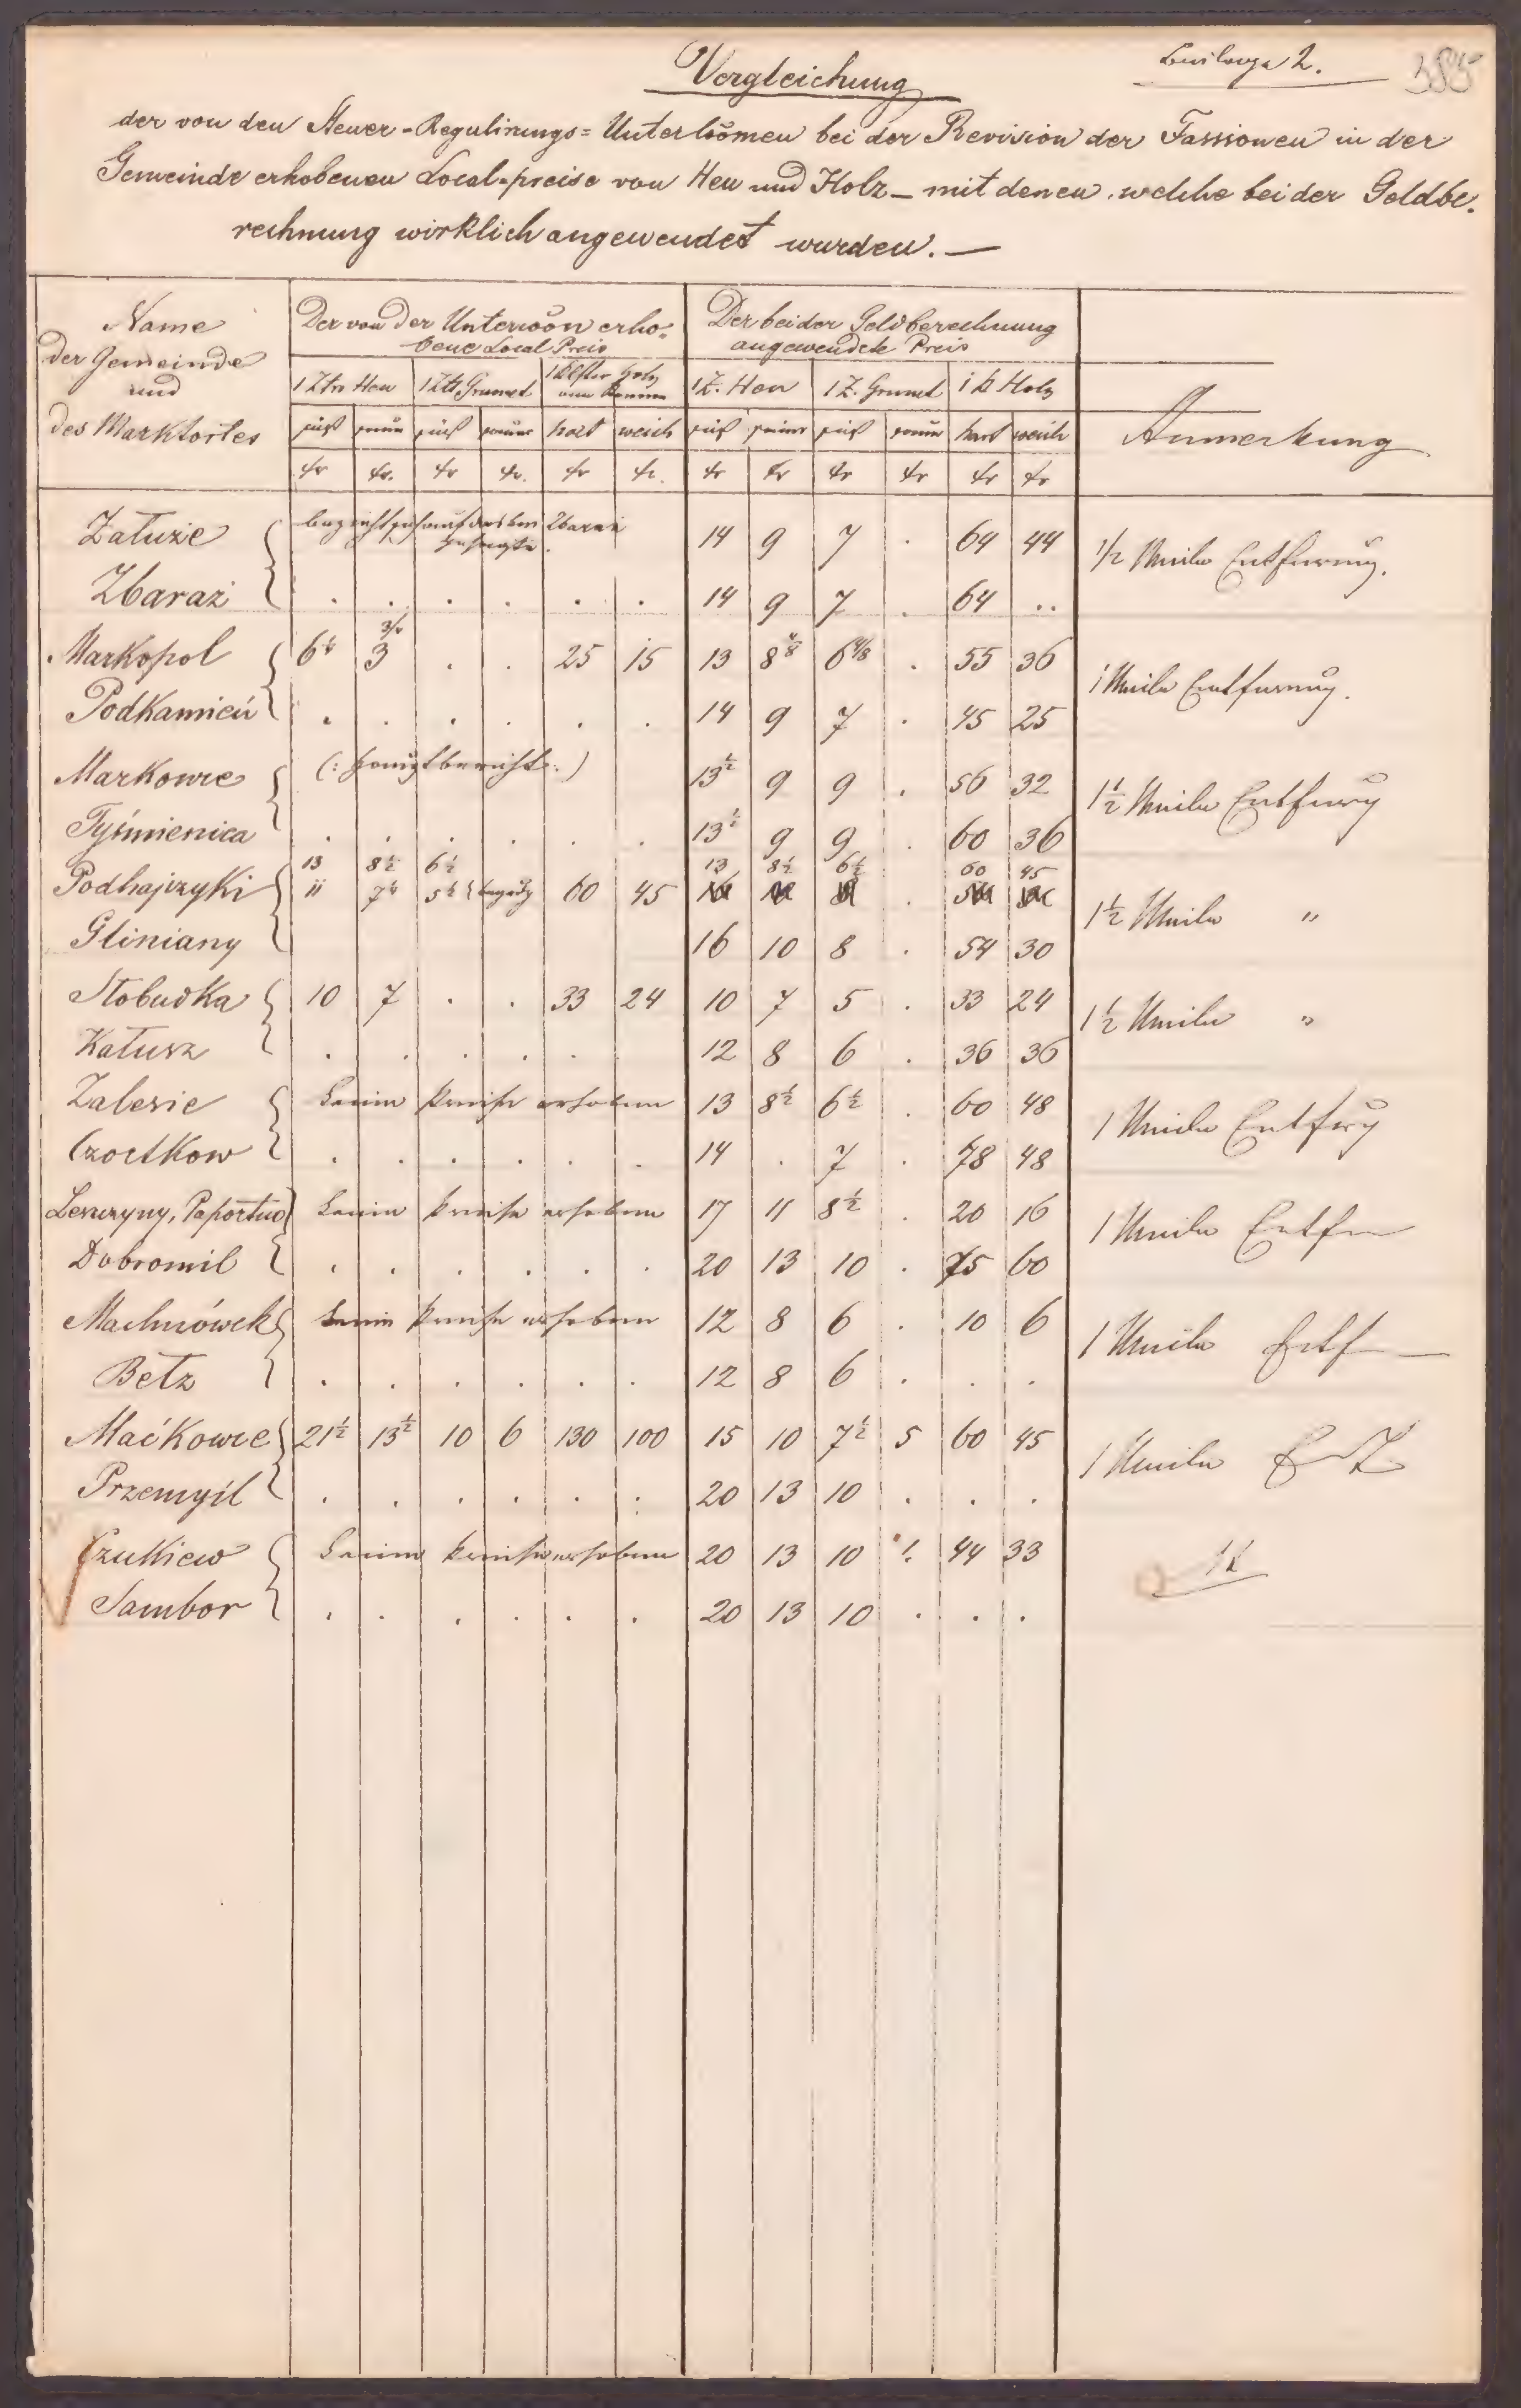 Beilage 2.
385
Vergleichung
der von den Steuer-Regulirungs=Unter[...]
bei der Revision der Fassionen in der
Gemeinde erhobenen Local-preise von Heu und Holz – mit denen, welche bei der Geldbe-
rechnung wirklich angewendet wurden. –
Name der Gemeinde und des Marktortes
Der von der Unter[...] erhobene Local Preis
Der bei der Geldberechnung angewendete Preis
Anmerkung
1 Ztr Heu 1 Ztr Grumet 1 Klafter Holz 1 Z. Heu 1 Z. Grumet 1 K Holz
süß sauer süß sauer hart weich süß sauer süß sauer hart weich
kr kr. kr kr. kr kr. kr kr kr kr kr kr
Załuże 14 9 7 . 64 44 1/2 Meile Entfernung.
Zbaraż . . . . . . 14 9 7 . 64 ..
Markopol 6 3 . . 25 15 13 8 6 4/8 . 55 36 1 Meile Entfernung.
Podkamień . . . . . . 14 9 7 . 45 25
Markowce (: Hauptbericht :) 13½ 9 9 . 56 32 1½ Meile
Tyśmienica . . . . . . 13½ 9 9 . 60 36
13 8½ 6½ 13 8½ 6½ 60 45
Podhajczyki 11 7½ 5½ 60 45 . 1½ Meile "
Gliniany 16 10 8 . 54 30
Słobudka 10 7 . . 33 24 10 7 5 . 33 24 1½ Meile "
Kałusz . . . . . . 12 8 6 . 36 36
Zalesie Keine Preise erhoben 13 8½ 6½ . 60 48 1 Meile
Czortkow . . . . . . 14 . 7 . 78 48
Leszczyny, Paportno Keine Preise erhoben 17 11 8½ . 20 16 1 Meile
Dobromil . . . . . . 20 13 10 . 75 60
Machnówek Keine Preise erhoben 12 8 6 . 10 6 1 Meile
Bełz . . . . . . 12 8 6 . . .
Maćkowce 21½ 13½ 10 6 130 100 15 10 7½ 5 60 45 1 Meile
Przemyśl . . . . . . 20 13 10 . . .
Czukiew Keine Preise erhoben 20 13 10 44 33
Sambor . . . . . . 20 13 10 . . .